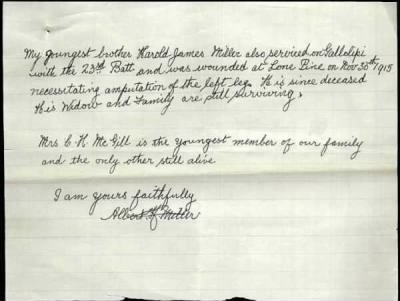 My youngest brother Harold James Miller also serviced on Gallolipi
with the 23rd Batt and was wounded at Lone Pine on Nov 30th 1915
necessitating amputation of the left leg. He is since deceased
His Widow and Family are still surviving.
Mrs C. H. McGill is the youngest member of our family
and the only other still alive
I am yours faithfully
Albert H Miller